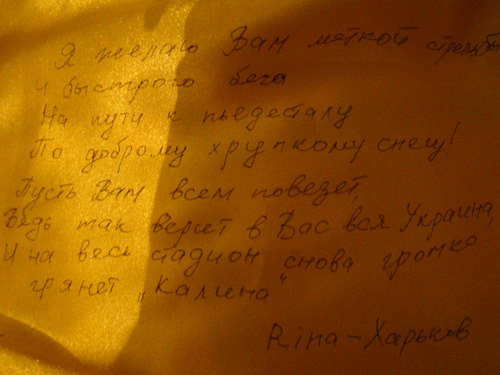 Я желаю Вам меткой стрельбы
и быстрого бега
На пути к пьедесталу
По доброму хрупкому снегу!
Пусть Вам всем повезет,
Ведь так верит в Вас вся Украина,
И на весь стадион снова громко
грянет „Калина"
Rina-Харьков